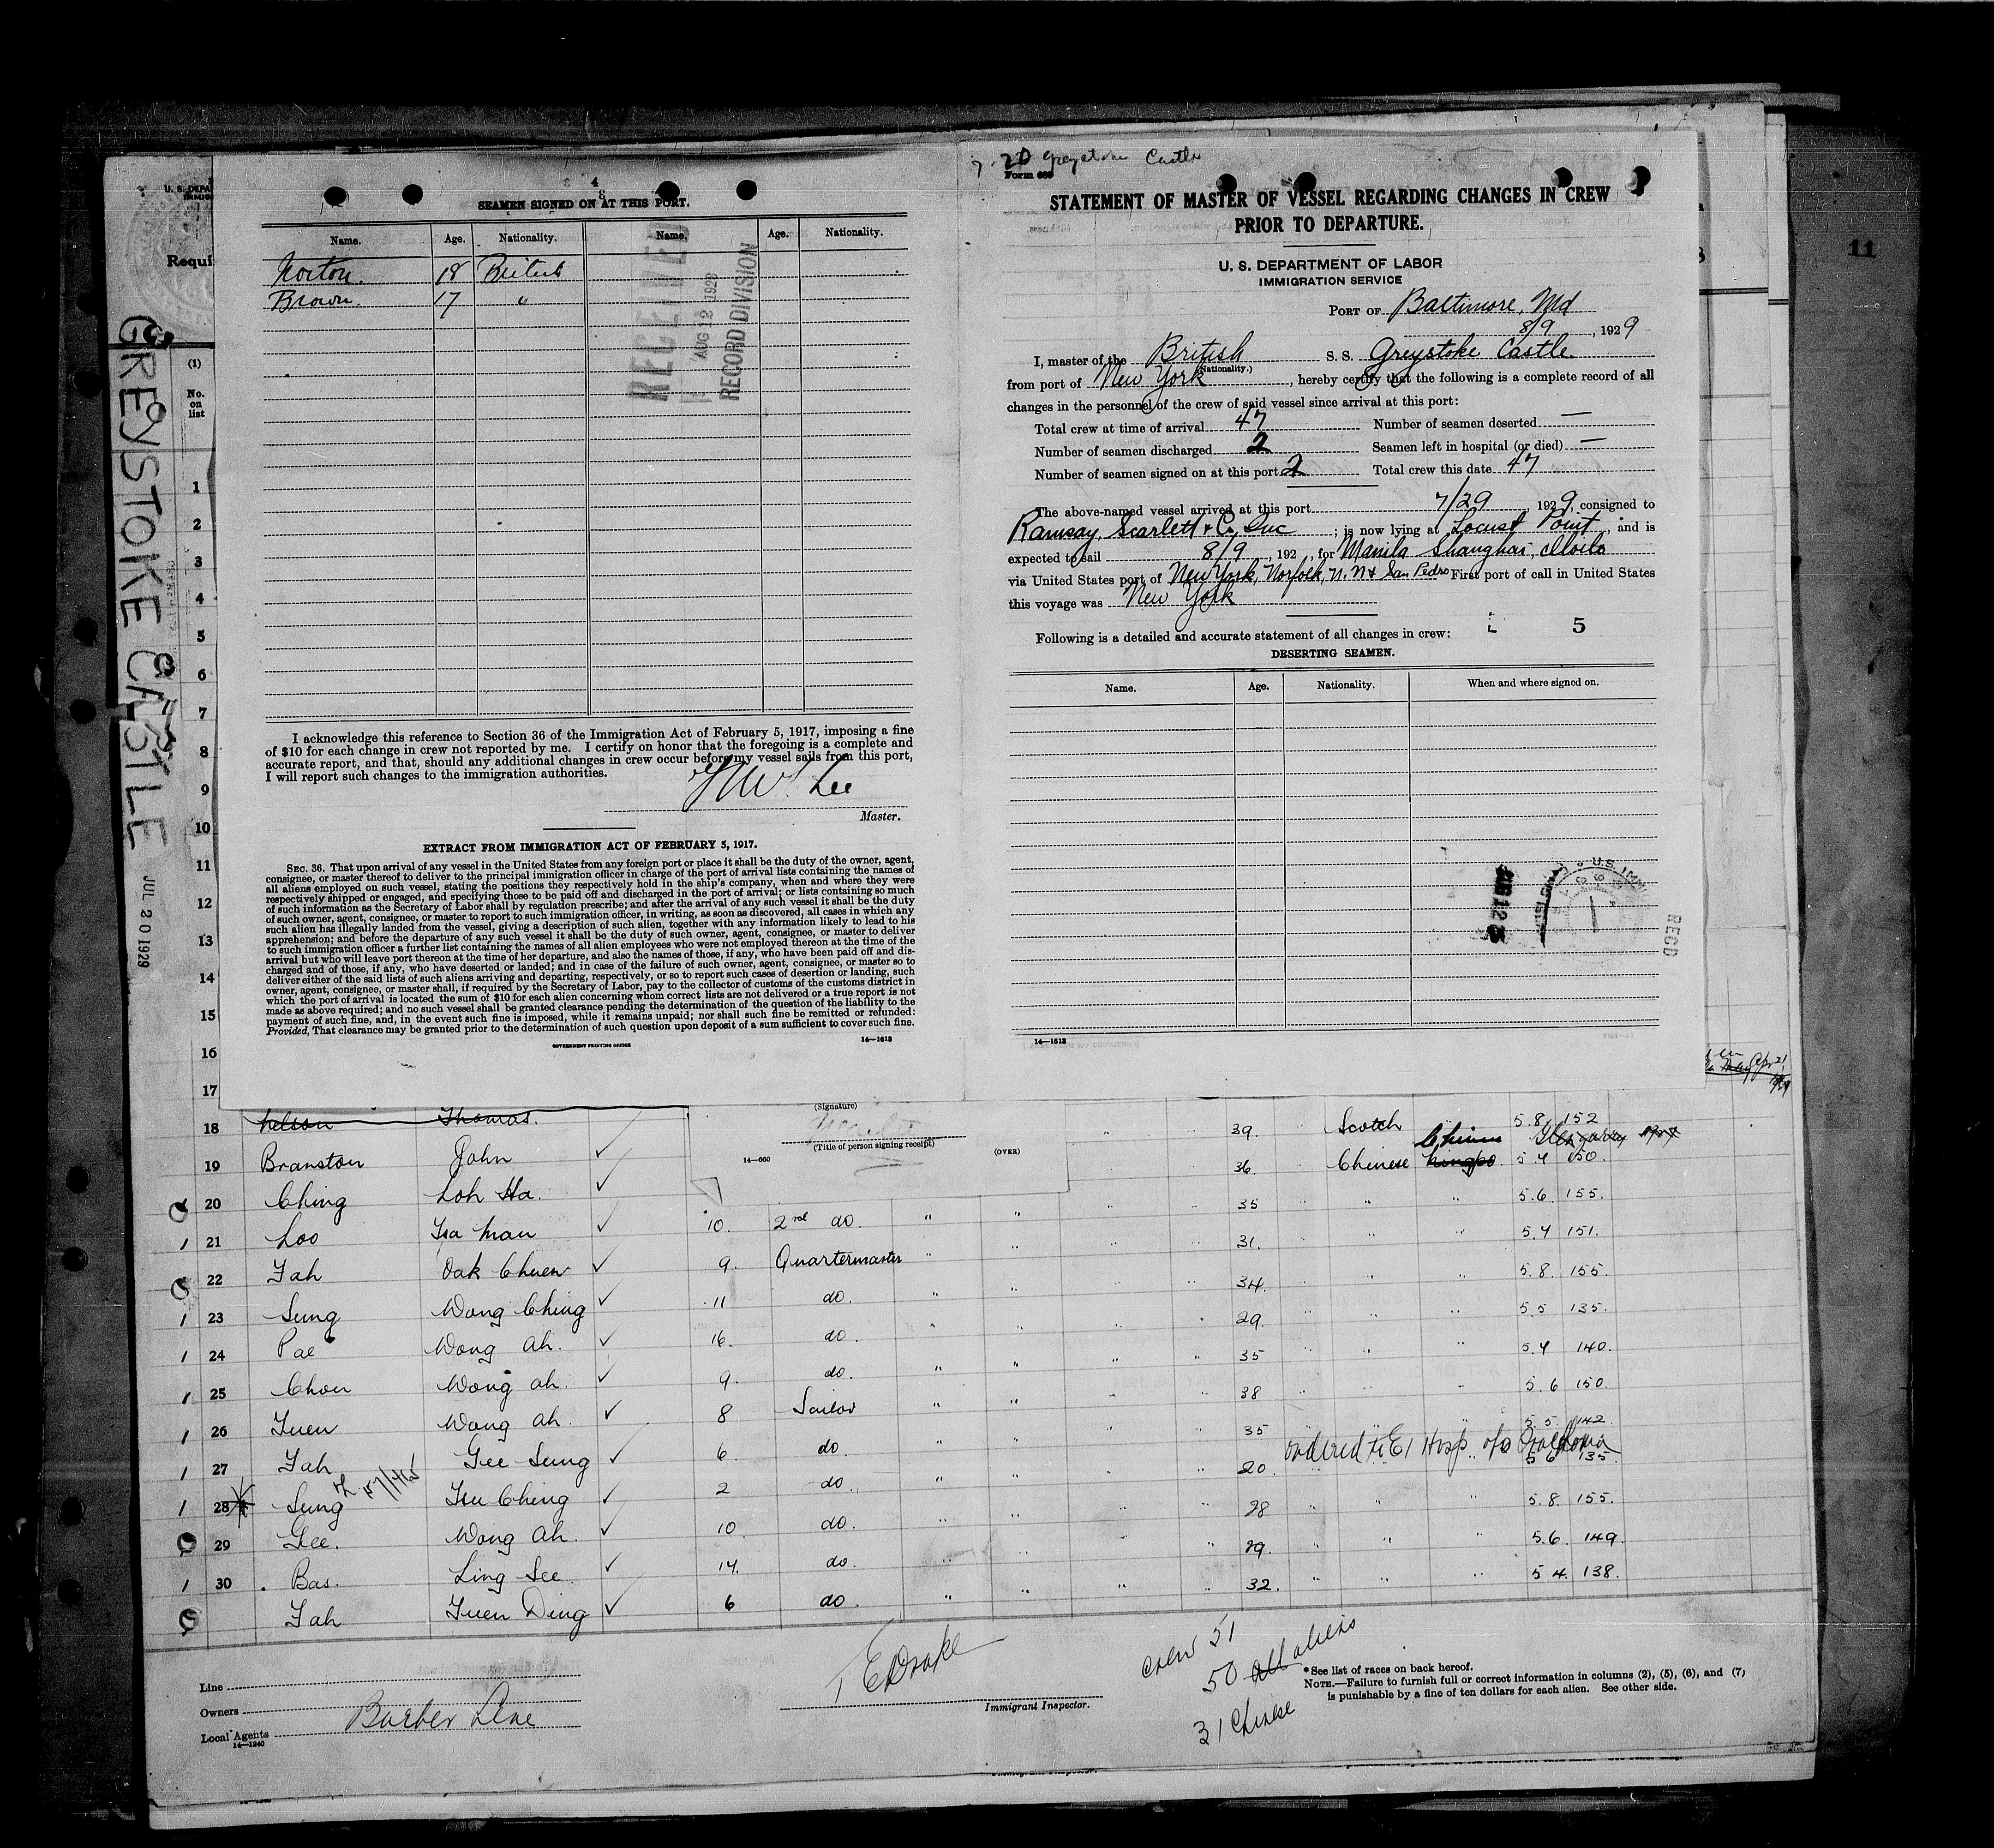 7-20 Greystoke Castle
11
U. S. DEPA
Requi
(1)
No.
on
list
GREYSTOKE CASTLE
JUL 20 1929
4
SEAMEN SIGNED ON AT THIS PORT.
Name. Age. Nationality. Name. Age. Nationality.
Norton. 18 British
Brown. 17 "
RECEIVED
AUG 12 1929
RECORD DIVISION
I acknowledge this reference to Section 36 of the Immigration Act of February 5, 1917, imposing a fine
of $10 for each change in crew not reported by me. I certify on honor that the foregoing is a complete and
accurate report, and that, should any additional changes in crew occur before my vessel sails from this port,
I will report such changes to the immigration authorities.
Lee
Master.
EXTRACT FROM IMMIGRATION ACT OF FEBRUARY 5, 1917.
SEC. 36. That upon arrival of any vessel in the United States from any foreign port or place it shall be the duty of the owner, agent,
consignee, or master thereof to deliver to the principal immigration officer in charge of the port of arrival lists containing the names of
all aliens employed on such vessel, stating the positions they respectively hold in the ship's company, when and where they were
respectively shipped or engaged, and specifying those to be paid off and discharged in the port of arrival; or lists containing so much
of such information as the Secretary of Labor shall by regulation prescribe; and after the arrival of any such vessel it shall be the duty
of such owner, agent, consignee, or master to report to such immigration officer, in writing, as soon as discovered, all cases in which any
such alien has illegally landed from the vessel, giving a description of such alien, together with any information likely to lead to his
apprehension; and before the departure of any such vessel it shall be the duty of such owner, agent, consignee, or master to deliver
to such immigration officer a further list containing the names of all alien employees who were not employed thereon at the time of the
arrival but who will leave port thereon at the time of her departure, and also the names of those, if any, who have been paid off and dis-
charged and of those, if any, who have deserted or landed; and in case of the failure of such owner, agent, consignee, or master so to
deliver either of the said lists of such aliens arriving and departing, respectively, or so to report such cases of desertion or landing, such
owner, agent, consignee, or master shall, if required by the Secretary of Labor, pay to the collector of customs of the customs district in
which the port of arrival is located the sum of $10 for each alien concerning whom correct lists are not delivered or a true report is not
made as above required; and no such vessel shall be granted clearance pending the determination of the question of the liability to the
payment of such fine, and, in the event such fine is imposed, while it remains unpaid; nor shall such fine be remitted or refunded:
Provided, That clearance may be granted prior to the determination of such question upon deposit of a sum sufficient to cover such fine.
GOVERNMENT PRINTING OFFICE 14—1613
Form 689
STATEMENT OF MASTER OF VESSEL REGARDING CHANGES IN CREW
PRIOR TO DEPARTURE.
U. S. DEPARTMENT OF LABOR
IMMIGRATION SERVICE
PORT OF Baltimore, Md
8/9, 1929
I, master of the British S. S. Greystoke Castle
(Nationality.)
from port of New York, hereby certify that the following is a complete record of all
changes in the personnel of the crew of said vessel since arrival at this port:
Total crew at time of arrival 47 Number of seamen deserted —
Number of seamen discharged 2 Seamen left in hospital (or died) —
Number of seamen signed on at this port 2 Total crew this date 47
The above-named vessel arrived at this port 7/29 1929, consigned to
Ramsay, Scarlett & Co. Inc; is now lying at Locust Point, and is
expected to sail 8/9, 192 , for Manila Shanghai, Iloilo
via United States port of New York, Norfolk, N. N & San Pedro First port of call in United States
this voyage was New York
Following is a detailed and accurate statement of all changes in crew: 5
DESERTING SEAMEN.
Name. Age. Nationality. When and where signed on.
AUG 12
U.S. IMM
RECD
14—1613
1
2
3
4
5
6
7
8
9
10
11
12
13
14
15
16
17
(Signature)
(Title of person signing receipt)
14—660 (OVER)
18 Nelson Thomas. 39. Scotch 5.8 152
19 Branston John ✓ 36. Chinese Chinese Ningpo 5.4 150.
20 Ching Loh Ha. ✓ 35 " " 5.6. 155.
1 21 Loo Tsa Man ✓ 10. 2nd do. " " 31. " " 5.4 151.
22 Yah Oak Chuen ✓ 9. Quartermaster " " 34. " " 5.8. 155.
1 23 Sung Wong Ching ✓ 11 do. " " 29. " " 5.5 135.
1 24 Pae Wong Ah. ✓ 16. do. " " 35 " " 5.4 140.
1 25 Chou Wong Ah. ✓ 9. do. " " 38 " " 5.6 150.
1 26 Yuen Wong Ah. ✓ 8 Sailor " " 35 " " 5.5. 142.
ordered to EI Hosp.
1 27 Yah Gee Sung ✓ 6. do. " " 20. " " 5 6 135.
1 28 Sung Tsu Ching ✓ 2 do. " " 28 " " 5.8. 155.
29 Gee. Wong Ah. ✓ 10. do. " " 29. " " 5.6. 149.
1 30 Bas. Ling See ✓ 14. do. " " 32. " " 5 4. 138.
Yah Yuen Ding ✓ 6 do. " "
T E Drake
Immigrant Inspector.
Crew 51
50 all aliens
31 Chinese
Line
Owners
Local Agents Barber Line
14—1240
*See list of races on back hereof.
NOTE.—Failure to furnish full or correct information in columns (2), (5), (6), and (7)
is punishable by a fine of ten dollars for each alien. See other side.